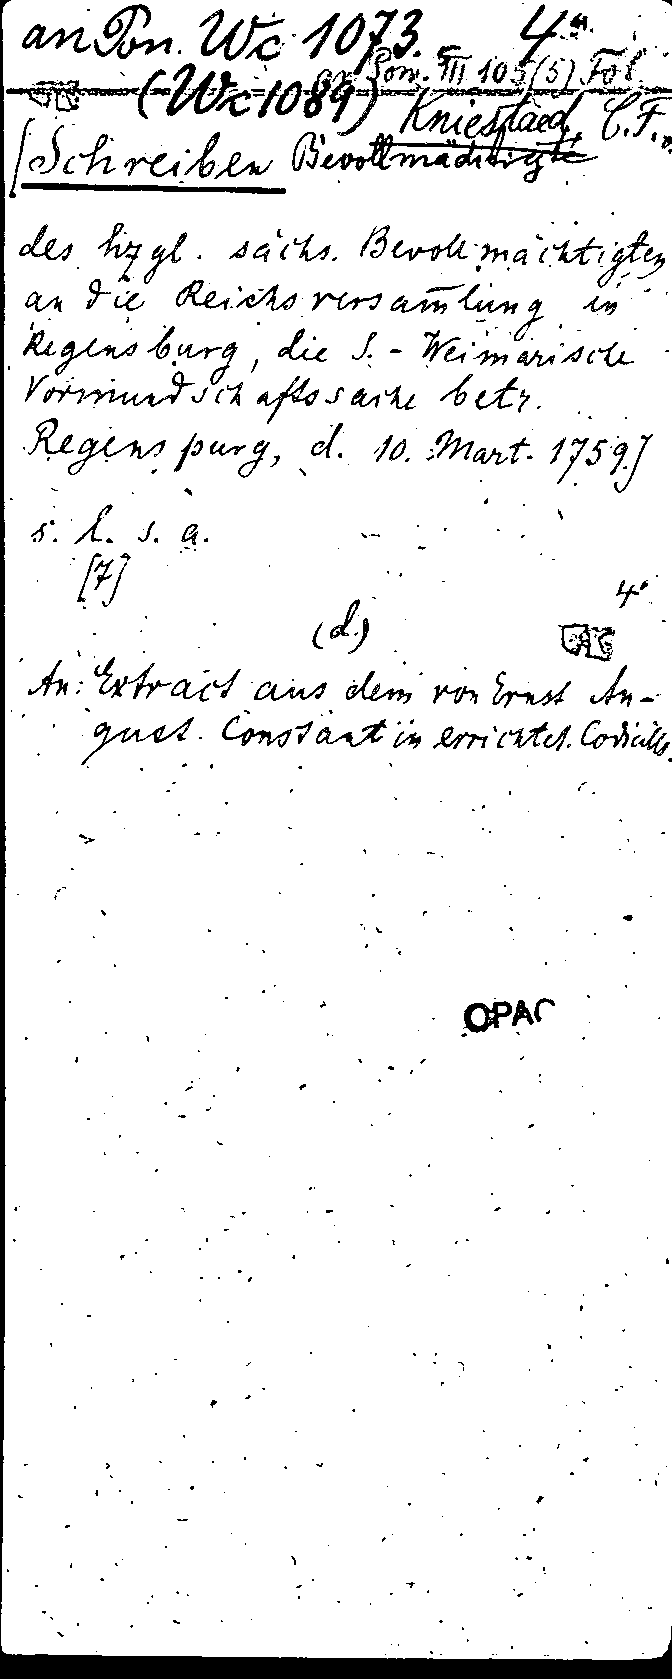 an Pon. Wc 1073. 4°.
an Pon. III 105(5) Fol
(Wc 1089)
Kniestaed, C.F.
[Schreiben Bevollmächtigte
des hzgl. sächs. Bevollmächtigten
an die Reichsversam̄lung in
Regensburg, die S.-Weimarische
Vormundschaftssache betr.
Regenspurg, d. 10. Mart. 1759.]
s. l. s. a.
[7]
4°
(d.)
An: Extract aus dem von Ernst Au-
gust. Constantin errichtet. Codicills.
OPAC